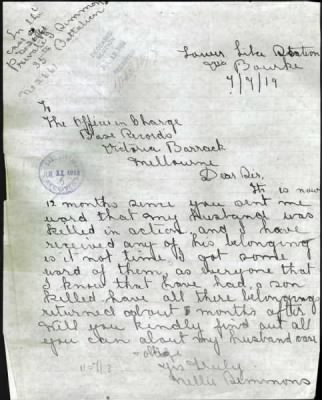 In the
case of
Private J Simmons
35th Battalion
Lower Lila Station
via Bourke
7/7/19
To
The Officer in Charge
Base Records
Victoria Barrack
Melbourne
Dear Sir,
It is now
12 months since you sent me
word that my Husband was
killed in action and I have
received any of his belonging
is it not time I got some
word of them, as everyone that
I know that have had a son
killed have all there belongings
returned about 5 months after
Will you kindly find out all
you can about my husband case
oblige
Yrs truly
Nellie Simmons